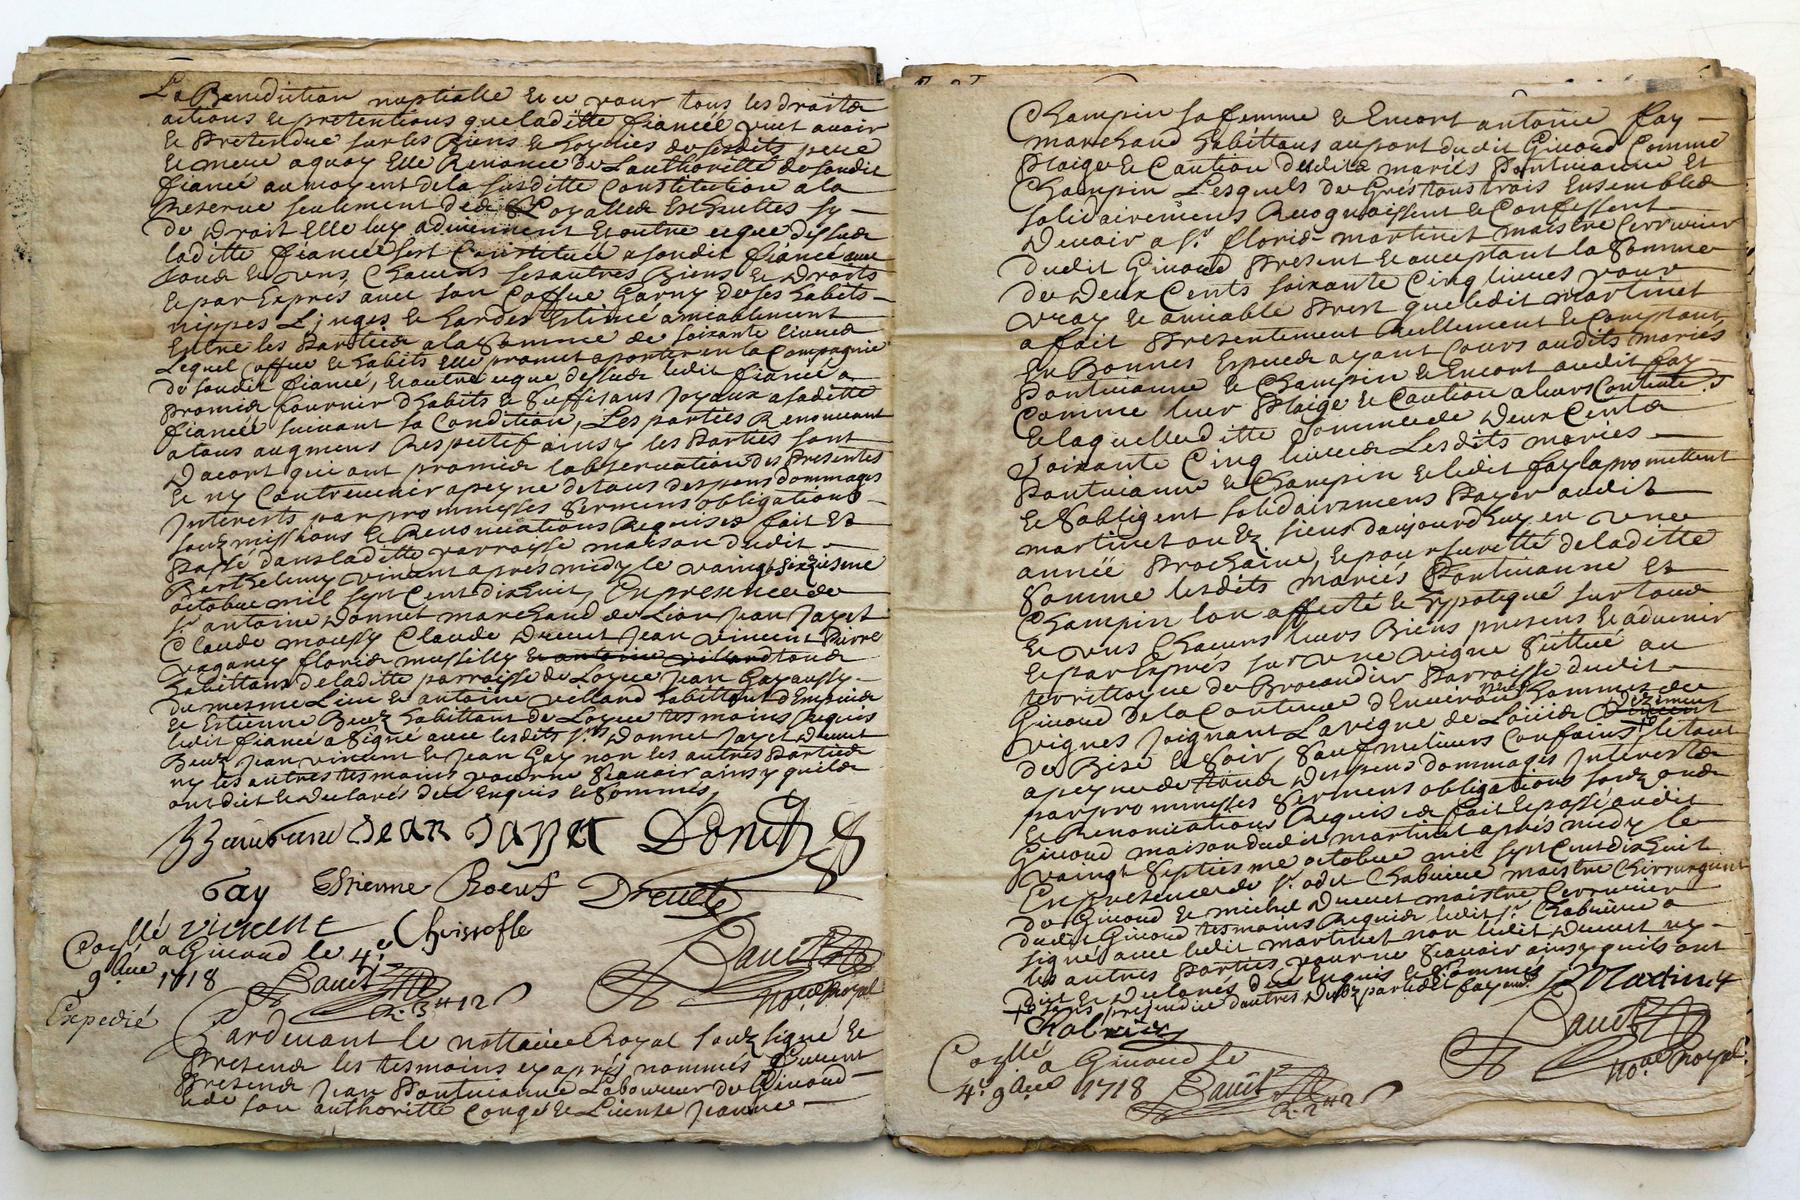 La Benediction nuptialle Et ce pour tous les droits
actions et pretentions que laditte fiancée peut avoir
et Pretendre sur les Biens et hoyries de sesdits pere
et mere a quoy Elle Renonce de Lauthoritté de sondit
fiancé au moyent de la susditte Constitution a la
Reserve seulement des Loyalles Escheuttes sy
de Droit Elle luy adviennent Et outre ce que dessus
laditte fiancée sest Constituée a sondit fiancé
tous et uns Chacuns ses autres Biens et Droits
et par Exprès avec son Coffre Garny de ses habits
nippes Linges et hardes Estimé ameablement
Entre les Parties a la somme de soixante livres
Lequel coffre et habits Elle promet aporter en la Compagnie
de sondit fiancé, Et outre ce que dessus ledit fiancé a
promis fournir d'habits et suffisans Joyaux a saditte
fiancée suivant sa Condition, Les parties Renonceant
a tous augmens Respectif ainsy les Parties sont
Dacort qui ont promis lobservation des Presentes
et ny Contrevenir a peyne de tous despens dommages
Interests par prommesses sermens obligations
soubzmissions et Renonciations Requises fait Et
Passé dans laditte parroisse maison dudit
Berthelemy vincent apres midy le vaingt sixziesme
octobre mil sept Cent dix huit, En presence de
sr antoine Donnet marchand de Lion Jean Jayet
Claude moussy Claude Drevet Jean vincent Pierre
vaganey floris mussilly et antoine villard tous
habittans de laditte parroisse de Loyre Jean Gay aussy
du mesme Lieu et antoine villard habittant d'Empuis
et Estienne Beuf habittant de Loyre tesmoins Requis
ledit fiancé a signé avec lesdits srs Donnet Jayet Drevet
Beuf Jean vincent et Jean Gay non les autres Parties
ny les autres tesmoins pour ne scavoir ainsy quils
ont dit et Declarés de ce Enquis et sommés
Jean Jayet Donet
Gay Estienne Boeuf Drevete
vicent Chuissofle
Collé a Givord le 4e
9bre 1718
nore Royal
Expedié
Pardevant le nottaire Royal soubzsigné et
Presens les tesmoins cy après nommés furent
Presens Jean Pontvianne Laboureur de Givord
et de son authoritté Congé et License Jeanne
Champin sa femme et Encore antoine fay
marchand habittans au port dudit Givord Comme
Plaige et Caution desdits mariés Pontvianne et
Champin Lesquels de Gré tous trois Ensembles
solidairemens Recognoissent et Confessent
Devoir a sr floris martinet maistre serrurier
dudit Givord Present et acceptant la somme
de Deux Cents soixante Cinq livres pour
vray et amiable Prest que ledit martinet
a fait Presentement Reellement et Comptant
en Bonnes Especes ayant Cours audits mariés
Pontvianne et Champin et Encort audit fay
Comme leur Plaige et Caution a leurs Contente.
et laquelle ditte somme de Deux Cents
soixante Cinq livres Lesdits mariés
Pontvianne et Champin et ledit fay la promettent
et s'obligent solidairemens Payer audit
martinet ou Ez siens daujourdhuy en une
année Prochaine, et pour surretté de laditte
somme lesdits mariés Pontvianne et
Champin lon affecté et hypotequé sur tous
et uns Chacuns leurs Biens presens et advenir
et par Exprès sur une vigne scittué au
territtoyre de Brocandier Parroisse dudit
Givord De la Contenue d'Environ hommées de
vignes Joignant La vigne de Louis
de Bise et soir sauf meilieurs Confains le tout
a peyne de tous Despens dommages Interests
par prommesses sermens obligations soubz ondes
et Renonciations Requises fait et passé audit
Givord maison dudit martinet après midy le
vaingt septiesme octobre mil sept Cent dix huit
En Presence de sr odet Chabrieres maistre Chirrurgient
de Givord et michel Drevet maistre Cerrurier
dudit Givord tesmoins Requis ledit sr Chabriere a
signé avec ledit martinet non ledit Drevet ny
les autres Parties pour ne scavoir ainsy quils ont
Dit et Declarés de ce Enquis et sommés
sans prejudice dautres
Martinet
Collé a Givord le
4e 9bre 1718
nore Royal